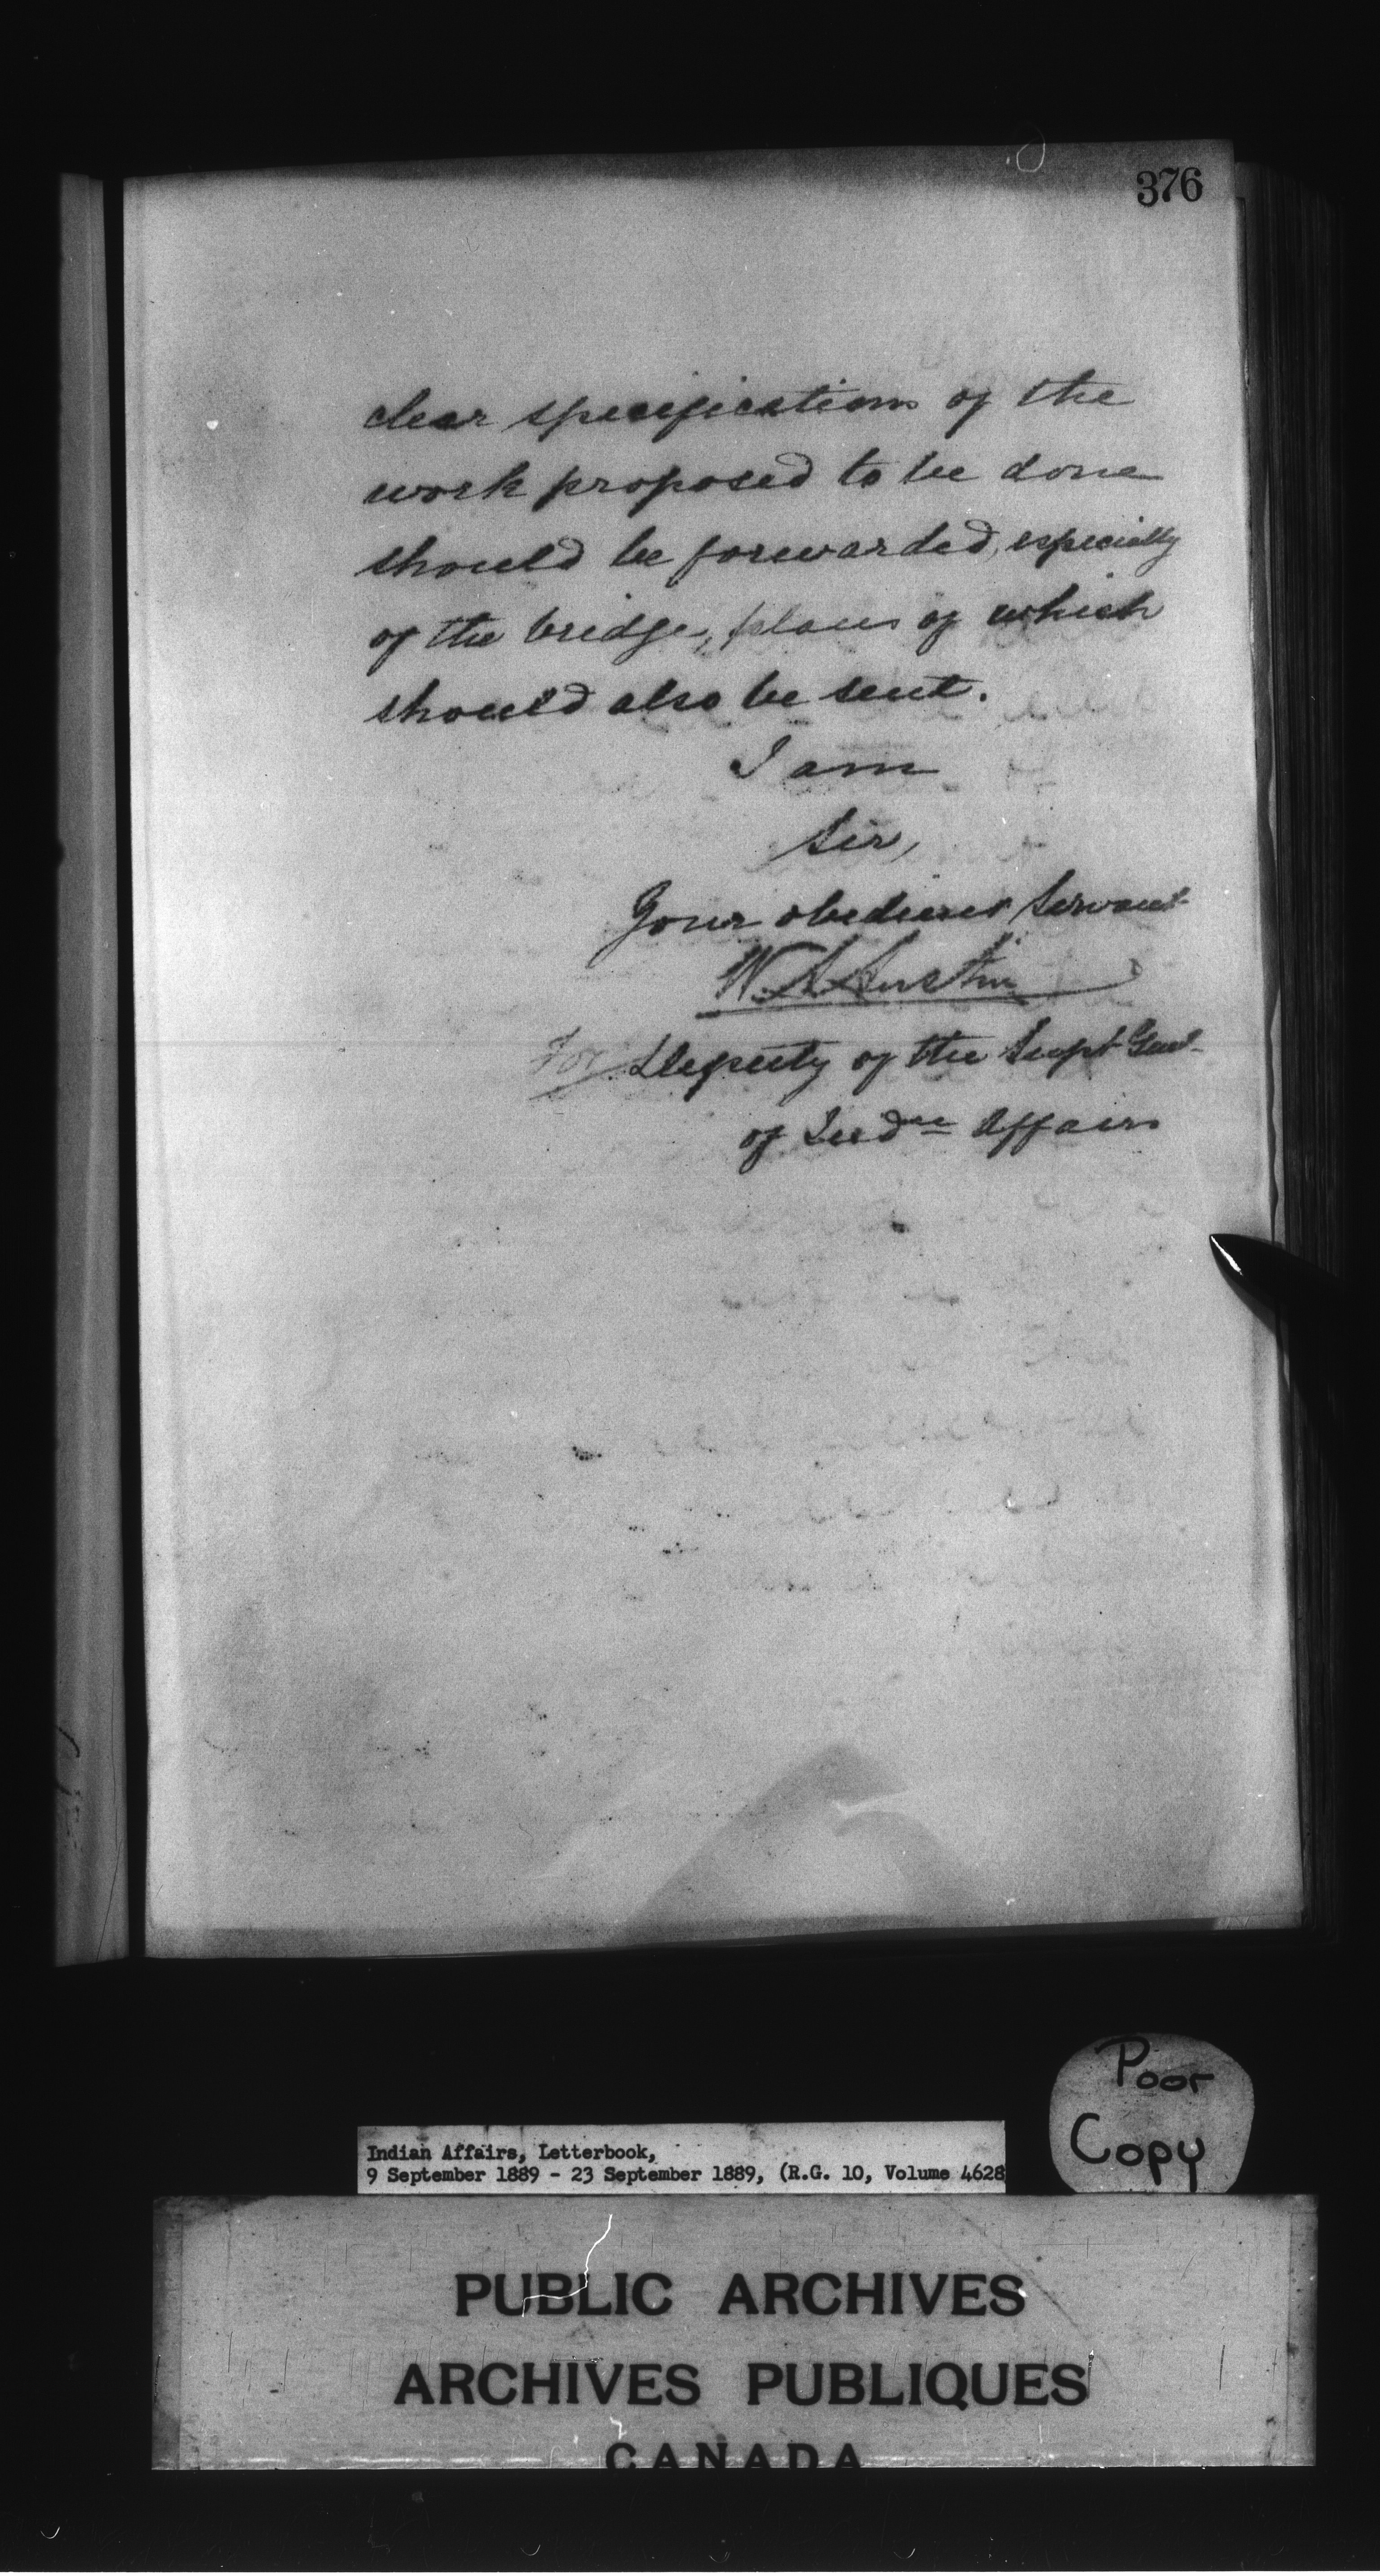 376
clear specifications of the
work proposed to be done
should be forwarded, especially
of the bridge, plans of which
should also be sent.
I am
Sir,
Your obedient Servant
W. A. Austin
For Deputy of the Supt Genl
of Indn Affairs
Poor
Copy
Indian Affairs, Letterbook,
9 September 1889 - 23 September 1889, (R.G. 10, Volume 4628
PUBLIC ARCHIVES
ARCHIVES PUBLIQUES
CANADA